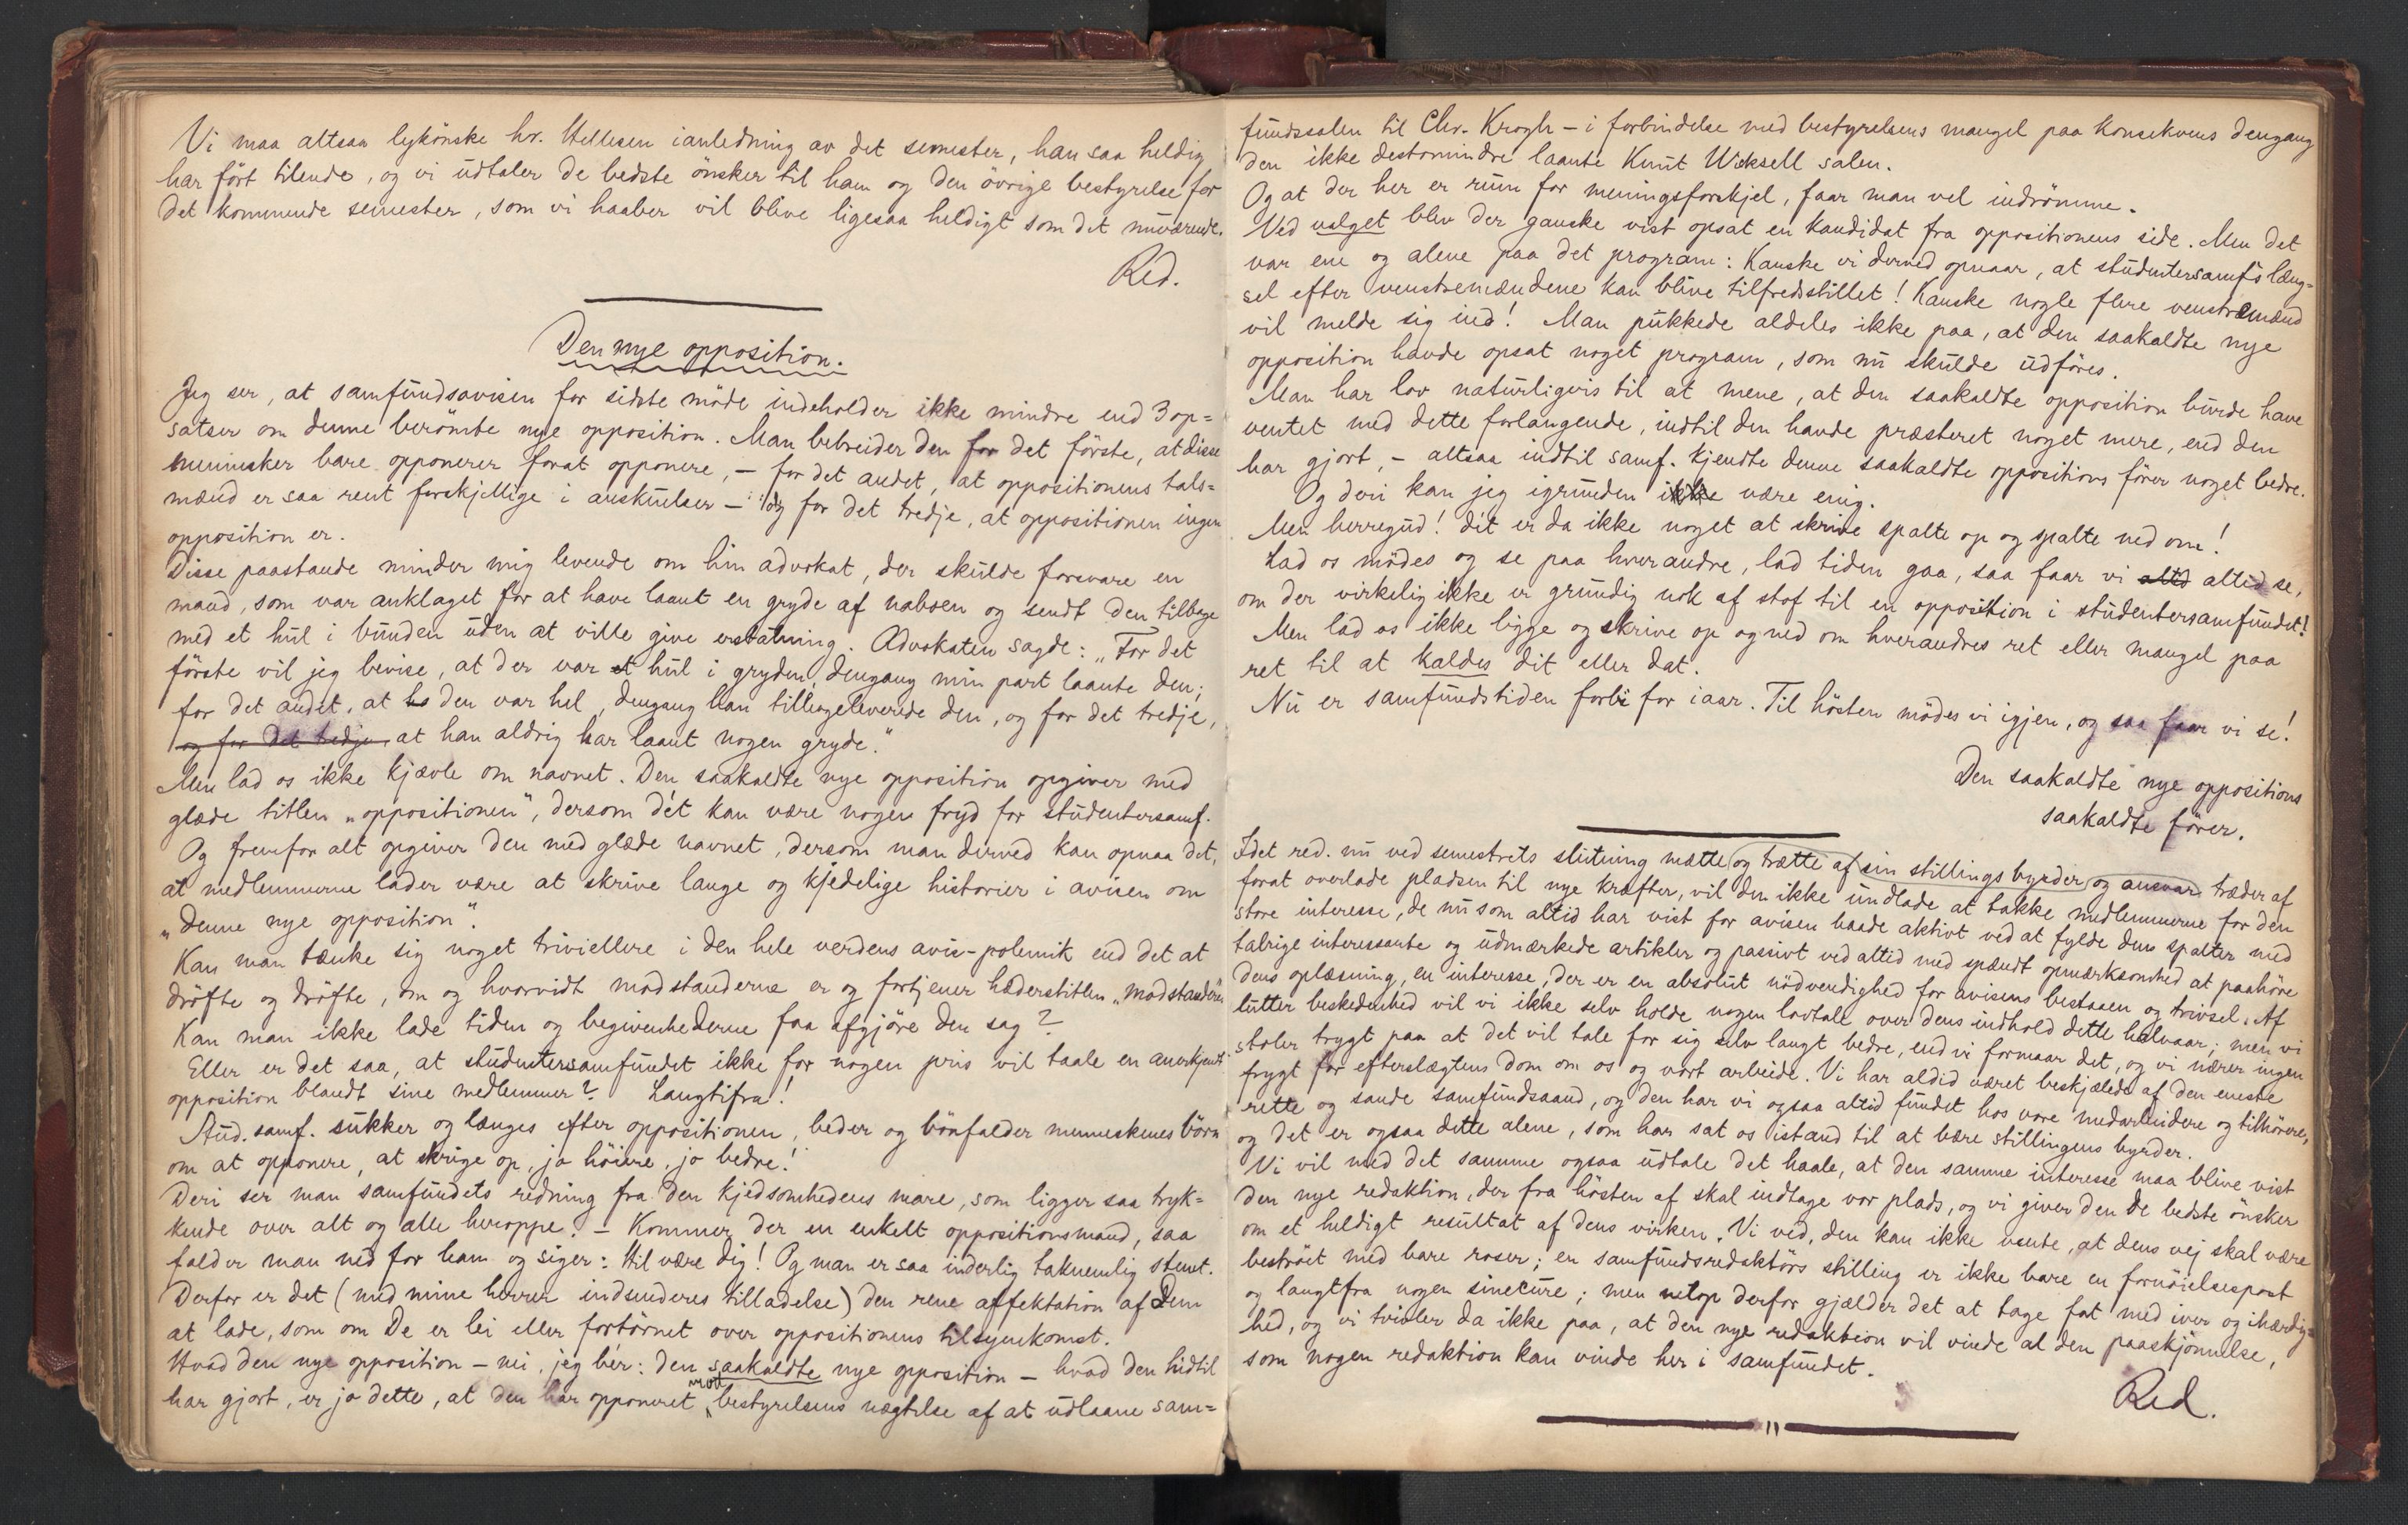 Vi maa altsaa lykönske hr. Hellesen ianledning av det semester, han saa heldig
har fört tilende, og vi udtaler de bedste önsker til ham og den övrige bestyrelse for
det kommende semester, som vi haaber vil blive ligesaa heldigt som det nuværende.
Red.
Den nye opposition.
Jeg ser, at samfundsavisen for sidste möde indeholder ikke mindre end 3 op=
satser om denne berömte nye opposition. Man bebreider den for det förste, at disse
mennesker bare opponerer forat opponere, – for det andet, at oppositionens tals=
mænd er saa rent forskjellige i anskuelser – og for det tredje, at oppositionen ingen
opposition er.
Disse paastande minder mig levende om hin advokat, der skulde forsvare en
mand, som var anklaget for at have laant en gryde af naboen og sendt den tilbage
med et hul i bunden uden at ville give erstatning. Advokaten sagde: „For det
förste vil jeg bevise, at der var et hul i gryden, dengang min part laante den;
for det andet, at den var hel, dengang han tilbageleverede den, og for det tredje,
og for det tredje, at han aldrig har laant nogen gryde."
Men lad os ikke kjævle om navnet. Den saakaldte nye opposition opgiver med
glæde titlen „oppositionen", dersom dét kan være nogen fryd for studentersamf.
Og fremfor alt opgiver den med glæde navnet, dersom man derved kan opnaa det,
at medlemmerne lader være at skrive lange og kjedelige historier i avisen om
„denne nye opposition".
Kan man tænke sig noget triviellere i den hele verdens avis-polemik end det at
dröfte og dröfte, om og hvorvidt modstanderne er og fortjener hæderstitlen „modstandere"
Kan man ikke lade tiden og begivenhederne faa afgjöre den sag?
Eller er det saa, at studentersamfundet ikke for nogen pris vil taale en anerkjendt
opposition blandt sine medlemmer? Langtifra!
Stud. samf. sukker og længes efter oppositionen, beder og bönfalder menneskenes börn
om at opponere, at skrige op, jo höiere, jo bedre!
Deri ser man samfundets redning fra den kjedsomhedens mare, som ligger saa tryk=
kende over alt og alle heroppe. – Kommer der en enkelt oppositionsmand, saa
falder man ned for ham og siger: Hil være dig! Og man er saa inderlig taknemlig stemt.
Derfor er det (med mine herrer indsenderes tilladelse) den rene affektation af Dem
at lade, som om De er lei eller fortörnet over oppositionens tilsynekomst.
Hvad den nye opposition – nei, jeg bér: den saakaldte nye opposition – hvad den hidtil
har gjort, er jo dette, at den har opponeret mod bestyrelsens nægtelse af at udlaane sam=
fundssalen til Chr. Krogh – i forbindelse med bestyrelsens mangel paa konsekvens dengang
den ikke destomindre laante Knut Wicksell salen.
Og at der her er rum for meningsforskjel, faar man vel indrömme.
Ved valget blev der ganske vist opsat en kandidat fra oppositionens side. Men det
var ene og alene paa det program: Kanske vi derved opnaar, at studentersamf's læng=
sel efter venstremændene kan blive tilfredsstillet! Kanske nogle flere venstremænd
vil melde sig ind! Man pukkede aldeles ikke paa, at den saakaldte nye
opposition havde opsat noget program, som nu skulde udföres.
Man har lov naturligvis til at mene, at den saakaldte opposition burde have
ventet med dette forlangende, indtil den havde præsteret noget mere, end den
har gjort, – altsaa indtil samf. kjendte denne saakaldte oppositions förer noget bedre.
Og deri kan jeg igrunden ikke være enig.
Men herregud! dét er da ikke noget at skrive spalte op og spalte ned om!
Lad os mödes og se paa hverandre, lad tiden gaa, saa faar vi altid altid se,
om der virkelig ikke er grundig nok af stof til en opposition i studentersamfundet!
Men lad os ikke ligge og skrive op og ned om hverandres ret eller mangel paa
ret til at kaldes dit eller dat.
Nu er samfundstiden forbi for iaar. Til hösten mödes vi igjen, og saa faar vi se!
Den saakaldte nye oppositions
saakaldte förer.
Idet red. nu ved semestrets slutning mætte og trætte af sin stillings byrder og ansvar træder af
forat overlade pladsen til nye kræfter, vil den ikke undlade at takke medlemmerne for den
store interesse, de nu som altid har vist for avisen baade aktivt ved at fylde dens spalter med
talrige interessante og udmærkede artikler og passivt ved altid med spændt opmærksomhed at paahöre
dens oplæsning, en interesse, der er en absolut nödvendighed for avisens bestaaen og trivsel. Af
lutter beskedenhed vil vi ikke selv holde nogen lovtale over dens indhold dette halvaar; men vi
stoler trygt paa at det vil tale for sig selv langt bedre, end vi formaar det, og vi nærer ingen
frygt for efterslægtens dom om os og vort arbeide. Vi har altid været beskjælede af den eneste
rette og sande samfundsaand, og den har vi ogsaa altid fundet hos vore medarbeidere og tilhörere,
og det er ogsaa dette alene, som har sat os istand til at bære stillingens byrder.
Vi vil med det samme ogsaa udtale det haab, at den samme interesse maa blive vist
den nye redaktion, der fra hösten af skal indtage vor plads, og vi giver den de bedste önsker
om et heldigt resultat af dens virken. Vi ved, den kan ikke vente, at dens vej skal være
beströet med bare roser; en samfundsredaktörs stilling er ikke bare en fornöielsespost
og langtfra nogen sinecure; men netop derfor gjælder det at tage fat med iver og ihærdig=
hed, og vi tviler da ikke paa, at den nye redaktion vil vinde al den paaskjönnelse,
som nogen redaktion kan vinde her i samfundet.
Red.